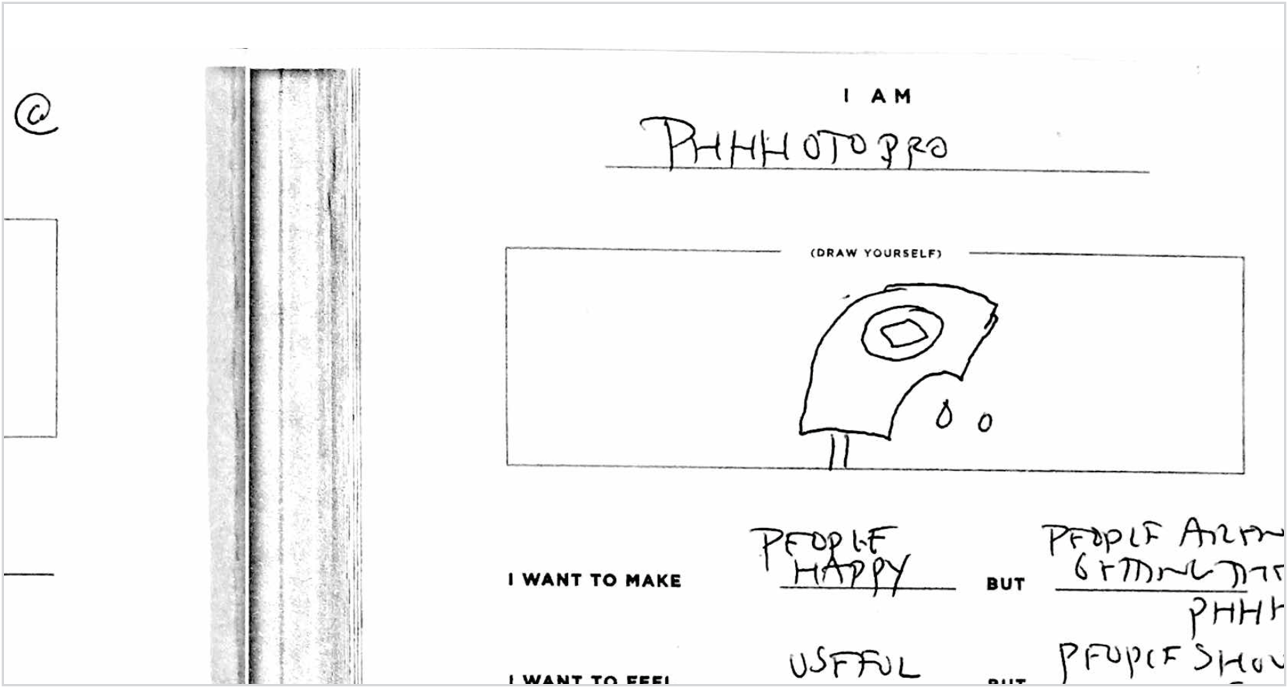 @
I AM
PHHHOTOPRO
(DRAW YOURSELF)
I WANT TO MAKE PEOPLE HAPPY BUT PEOPLE
PHHH
I WANT TO FEEL USEFUL BUT PEOPLE